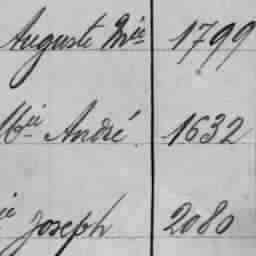 Auguste Mie 1799
André 1632
Joseph 2080